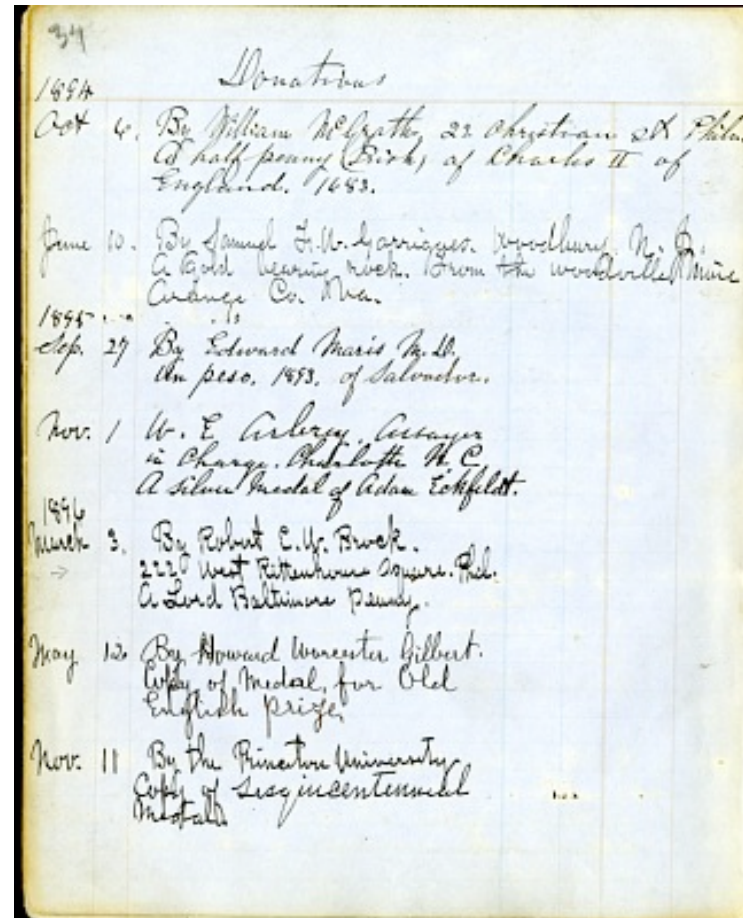 34
Donations
1894
Oct 6. By William McGrath, 22 Christian st Phila.
A half penny (Irish) of Charles II of
England. 1683.
June 10. By Samuel F. W. Garrigues. Woodbury N. J.
A Gold bearing rock. From the Woodville Mine
Orange Co. Va.
1895
Sep. 27 By Edward Maris, M.D.
Un peso. 1893. of Salvador.
Nov. 1 W. E. Assayer
in Charge. Charlotte N. C.
A silver medal of Adam Eckfeldt.
1896
March 3. By Robert C. H. Brock.
222 West Rittenhouse Square. Phil.
A Lord Baltimore Penny.
May 12 By Howard Worcester Gilbert.
Copy of Medal, for Old
English prize,
Nov. 11 By the Princeton University
Copy of Sesqincentennial
Medal